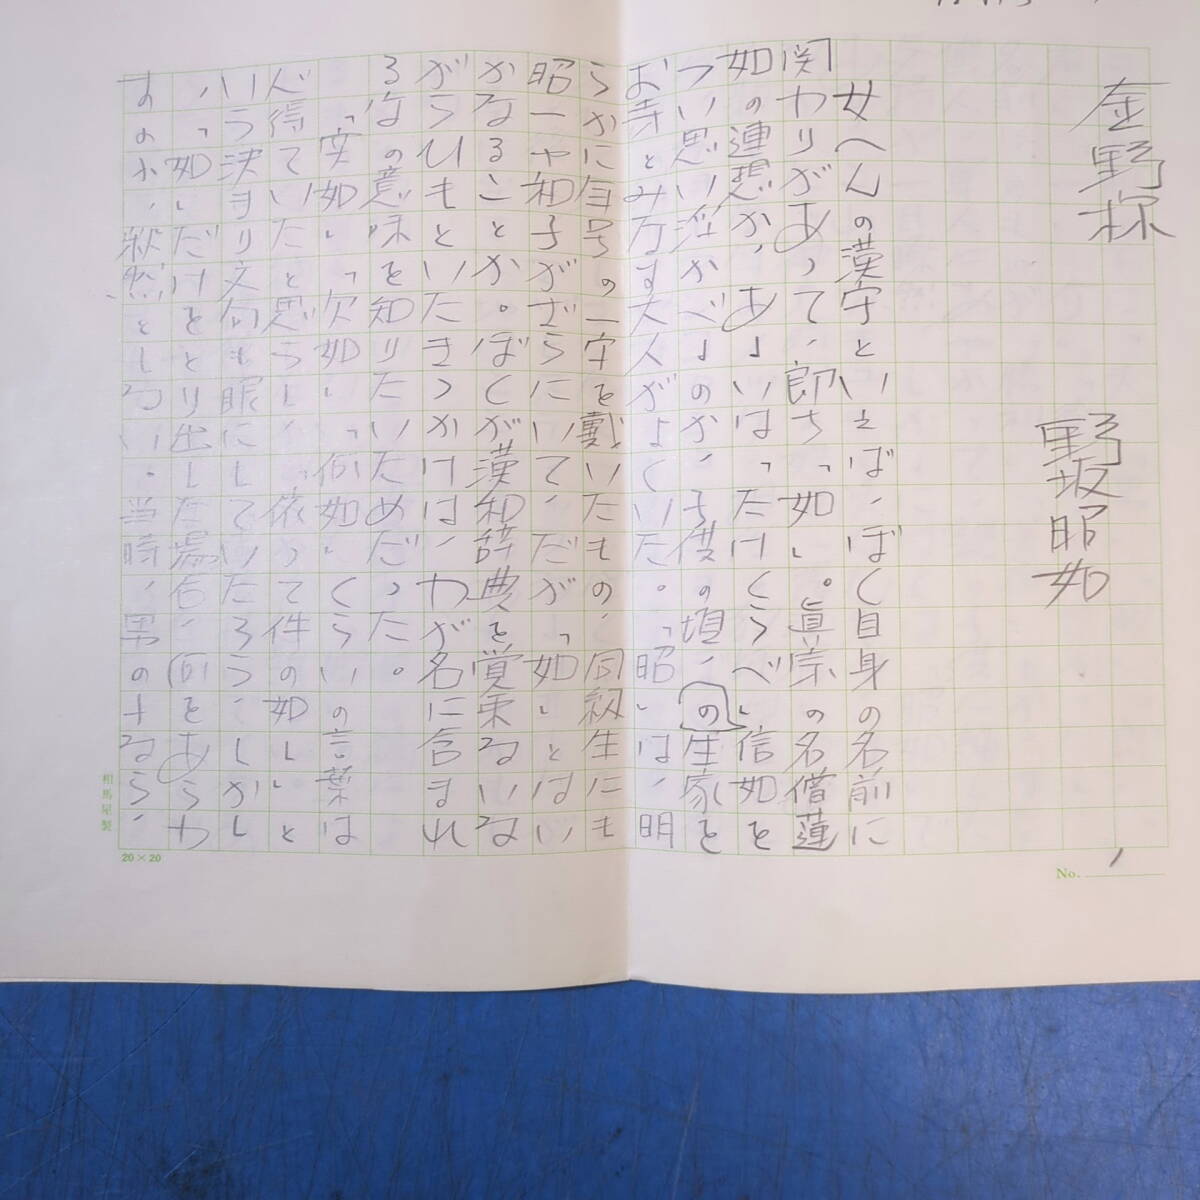 野坂昭如
女へんの漢字といえば、ぼく自身の名前に
関わりがあって、即ち「如」。眞宗の名僧蓮
如の連想か、あるいは「たけくらべ」信如を
つい思い浮かべるのか、子供の頃、の生家を
お寺とみなす大人がよくいた。「昭」は、明
らかに年号の一字を戴いたもの、同級生にも
昭一や和子がざらにいて、だが「如」とはい
かなることか。ぼくが漢和辞典を覚束ないな
がらひもといたきっかけは、わが名に含まれ
る如の意味を知りたいためだった。
「突如」「欠如」「何如」くらいの言葉は
心得ていたと思うし、「依って件の如し」と
いう決まり文句も眼にしていたろう、しかし
「如」だけをとり出した場合、何をあらわ
すのか、釈然としない。当時、男の子なら、
相馬屋製
20×20
No. 1